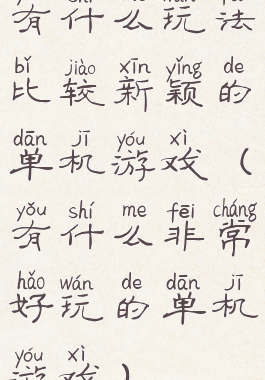 有什么玩法
bǐ jiào xīn yǐng de
比较新颖的
dān jī yóu xì
单机游戏（
yǒu shí me fēi cháng
有什么非常
hǎo wán de dān jī
好玩的单机
yóu xì
游戏）